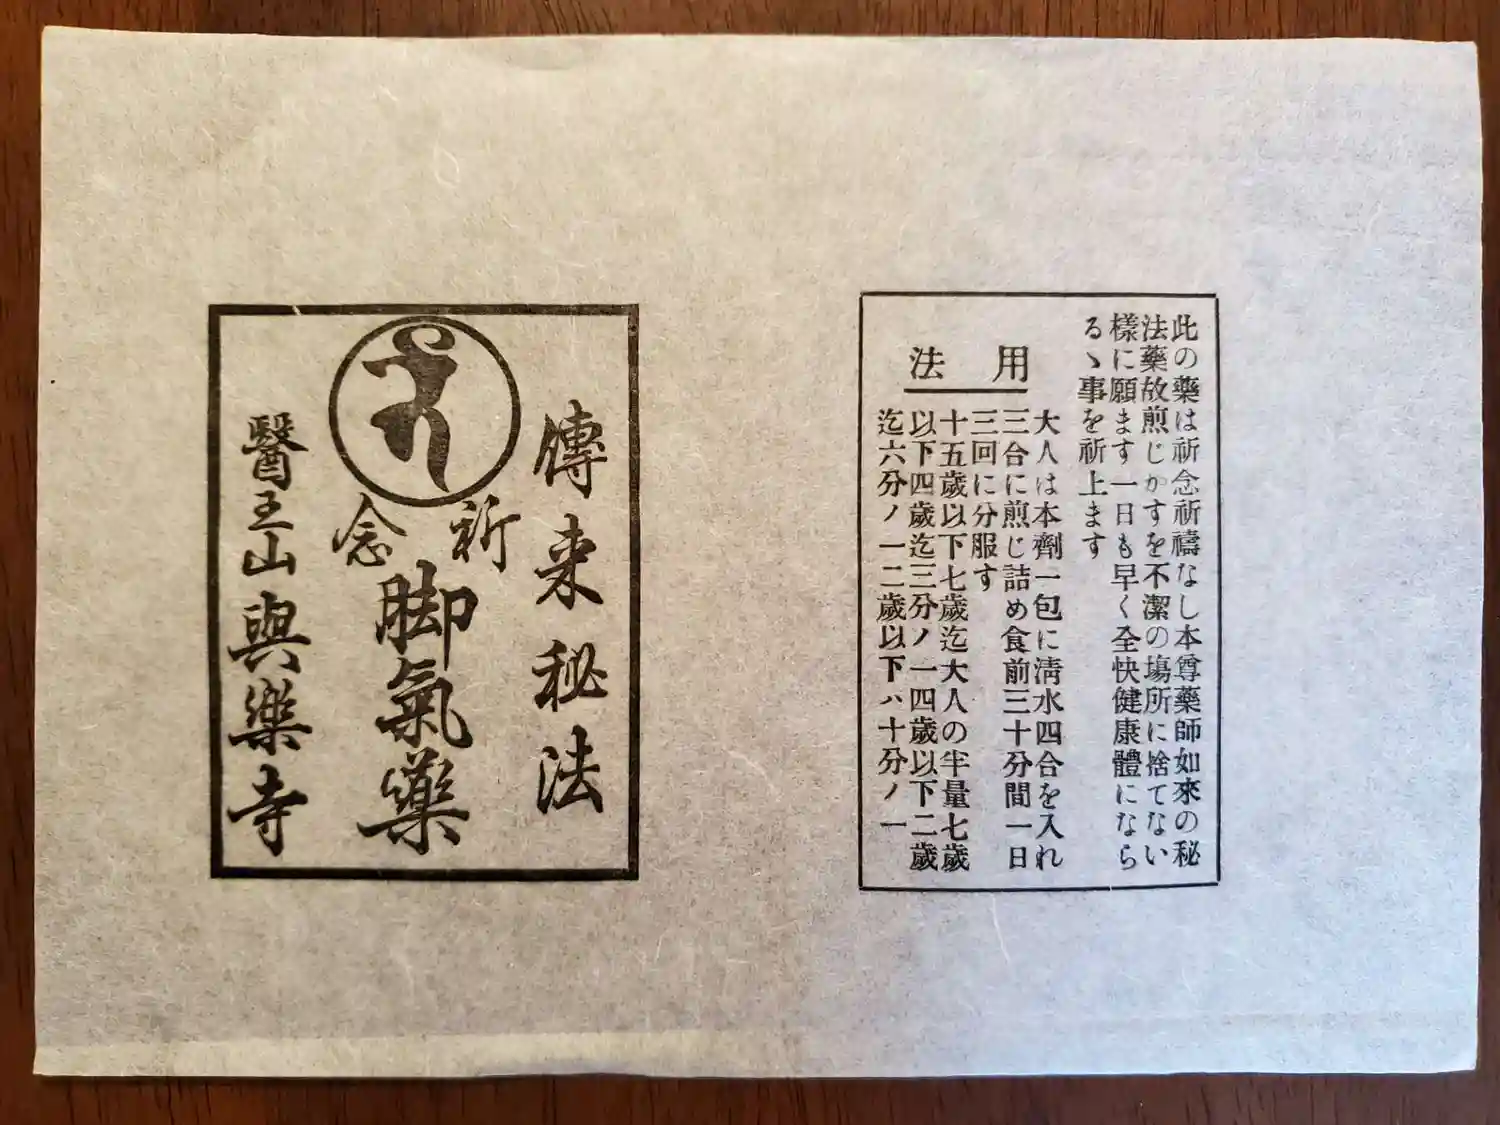 此の藥は祈念祈禱なし本尊藥師如來の秘
法藥故煎じかすを不潔の塲所に捨てない
樣に願ます一日も早く全快健康體になら
るゝ事を祈上ます
用法
大人は本劑一包に淸水四合を入れ
三合に煎じ詰め食前三十分間一日
三回に分服す
十五歲以下七歲迄大人の半量七歲
以下四歲迄三分ノ一四歲以下二歲
迄六分ノ一二歲以下ハ十分ノ一
傳来秘法
祈念
脚氣藥
醫王山與藥寺